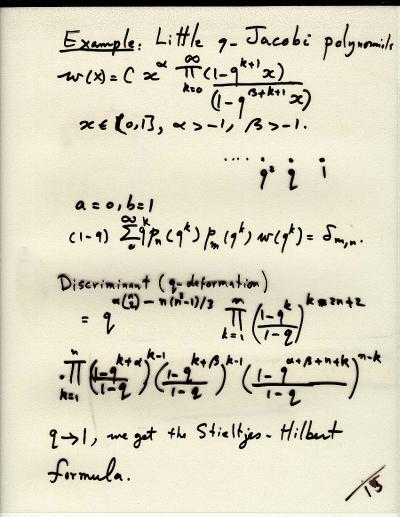 Example: Little q-Jacobi polynomials
w(x) = C x^α ∏_{k=0}^∞ (1-q^{k+1}x)/(1-q^{β+k+1}x)
x ∈ [0,1], α > -1, β > -1.
.... q² q 1
a = 0, b = 1
(1-q) ∑_0^∞ q^k p_n(q^k) p_m(q^k) w(q^k) = δ_{m,n}.
Discriminant (q-deformation)
= q^{α(n 2) - n(n²-1)/3} ∏_{k=1}^n ((1-q^k)/(1-q))^{k-2n+2}
· ∏_{k=1}^n ((1-q^{k+α})/(1-q))^{k-1} ((1-q^{k+β})/(1-q))^{k-1} ((1-q^{α+β+n+k})/(1-q))^{n-k}
q→1, we get the Stieltjes-Hilbert
formula.
/15